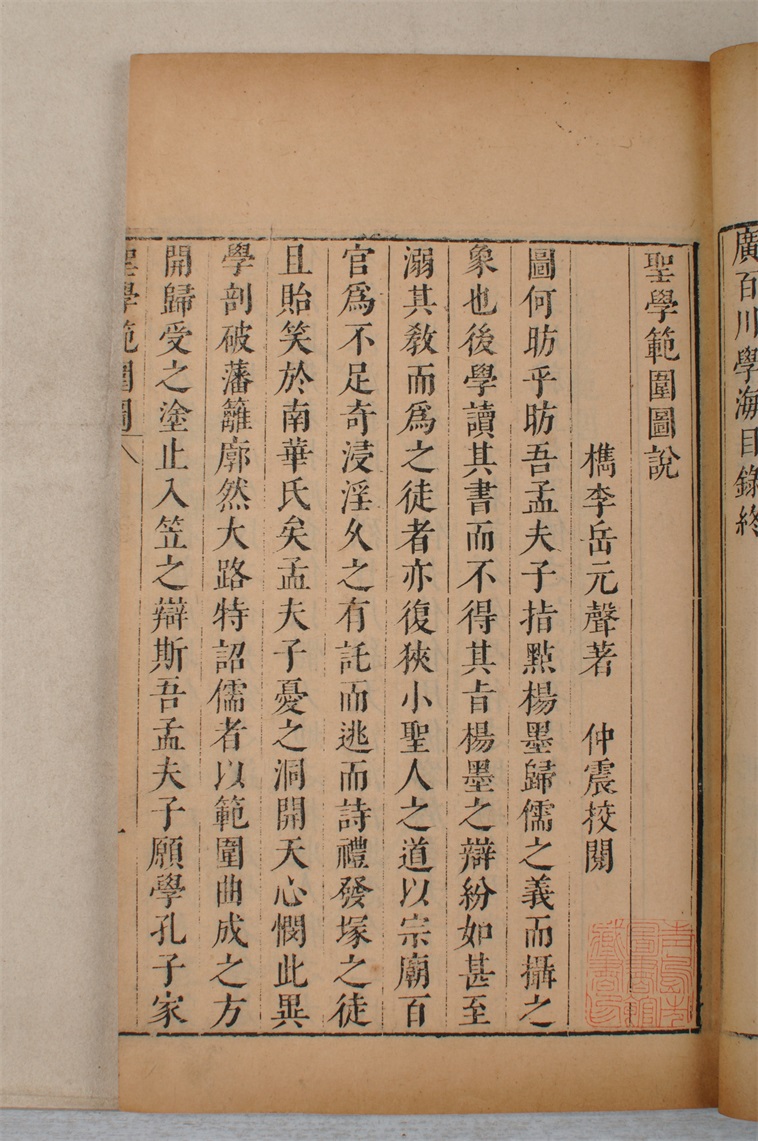 廣百川學海目錄終
聖學範圍圖說
檇李岳元聲著　仲震校閱
圖何昉乎昉吾孟夫子拈㸃楊墨歸儒之義而攝之
象也後學讀其書而不得其㫖楊墨之辯紛如甚至
溺其敎而爲之徒者亦復狹小聖人之道以宗廟百
官爲不足奇浸淫久之有託而逃而詩禮發塚之徒
且貽笑於南華氏矣孟夫子憂之洞開天心憫此異
學剖破藩籬廓然大路特詔儒者以範圍曲成之方
開歸受之塗止入笠之辯斯吾孟夫子願學孔子家
聖學範圍圖
一